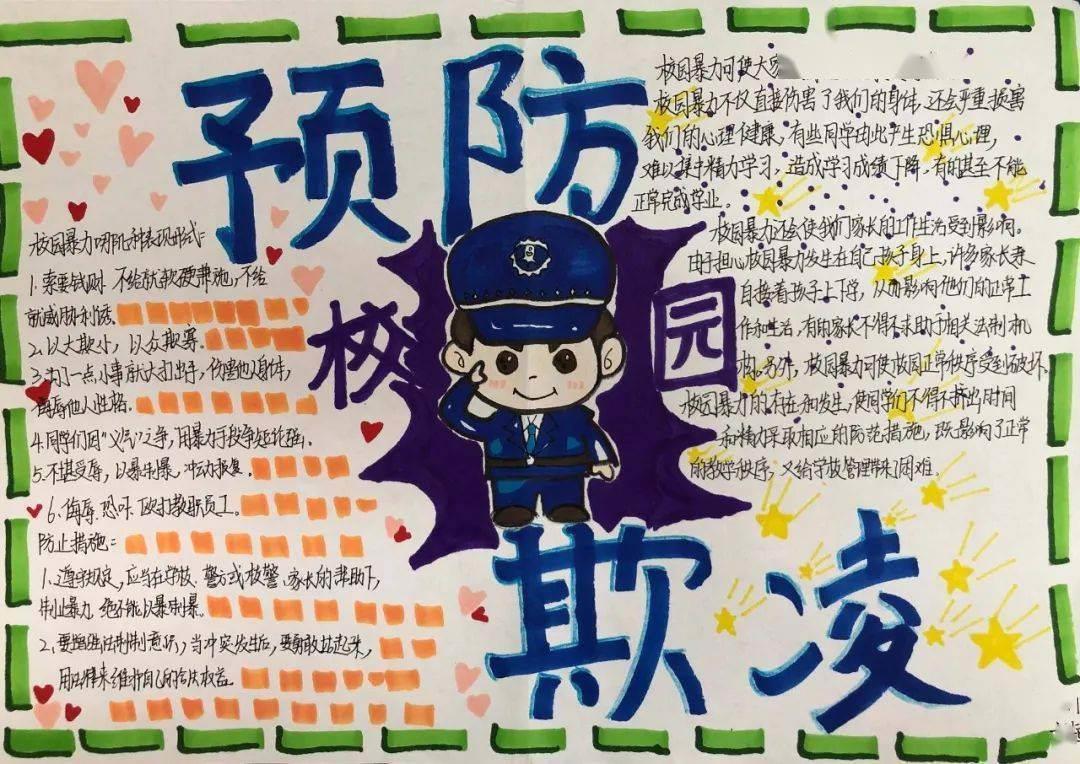 预防
校园
欺凌
校园暴力哪几种表现形式:
1.索要钱财 不给就软硬兼施,不给
就威胁利诱
2.以大欺小,以众欺寡。
3.为了一点小事就大打出手,伤害他人身体,
侮辱他人性格.
4.同学们因“义气”之争,用暴力手段争短论强。
5.不堪受辱,以暴制暴,冲动报复。
6.侮辱.恐吓.殴打教职员工。
防止措施:
1.遵守规定,应当在学校、警方或 家长的帮助下,
制止暴力 绝不能以暴制暴.
2.要增强法制意识,当冲突发生后,要勇敢站起来,
用法律来维护自己的合法权益.
校园暴力可使大家
校园暴力不仅直接伤害了我们的身体.还会严重损害
我们的心理健康,有些同学由此产生恐惧心理,
难以集中精力学习,造成学习成绩下降.有的甚至不能
正常完成学业。
校园暴力还会使我们家长的工作生活受到影响。
由于担心校园暴力发生在自己孩子身上,许多家长亲
自接着孩子上下学,从而影响他们的正常工
作和生活,有的家长不得不求助于相关法制机
构.另外,校园暴力可使校园正常秩序受到破坏.
校园暴力的存在和发生,使同学们不得不挤出时间
和精力采取相应的防范措施,既影响了正常
的教学秩序,又给学校管理带来了困难.